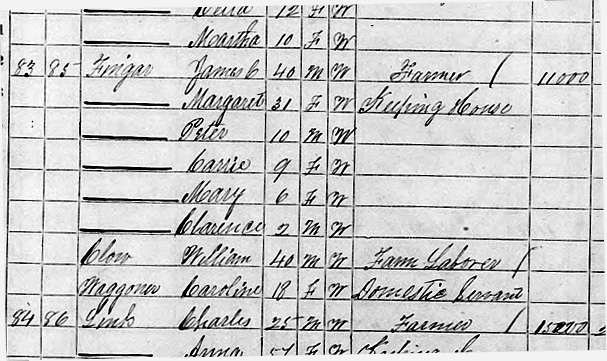 Delia 12 F W
Martha 10 F W
83 85 Fingar James C 40 M W Farmer 11000
Margaret 31 F W Keeping House
Peter 10 M W
Carrie 9 F W
Mary 6 F W
Clarence 2 M W
Clow William 40 M W Farm Laborer
Waggoner Caroline 18 F W Domestic Servant
84 86 Link Charles 25 M W Farmer
Anna 57 F W Keeping